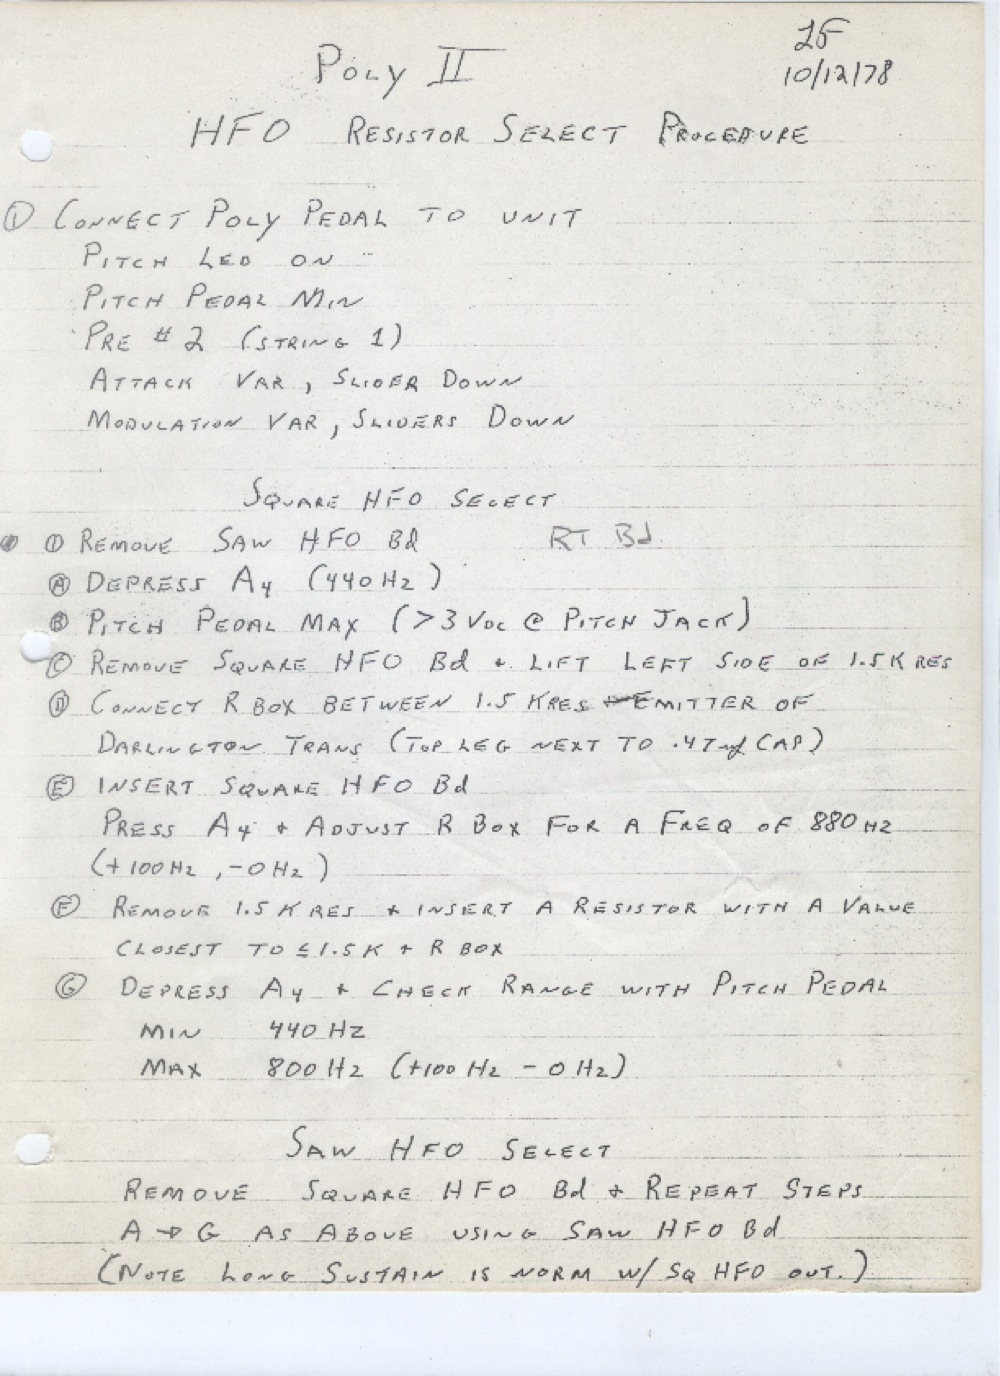 Poly II
10/12/78
HFO Resistor Select Procedure
① Connect Poly Pedal to unit
Pitch Led on
Pitch Pedal Min
Pre # 2 (String 1)
Attack Var, Slider Down
Modulation Var, Sliders Down
Square HFO Select
① Remove Saw HFO Bd RT Bd
Ⓐ Depress A4 (440Hz)
Ⓑ Pitch Pedal Max (>3 Vdc @ Pitch Jack)
Ⓒ Remove Square HFO Bd + Lift Left Side of 1.5K Res
Ⓓ Connect R Box Between 1.5 K Res Emitter of
Darlington Trans (Top Leg Next to .47 mf Cap)
Ⓔ Insert Square HFO Bd
Press A4 + Adjust R Box For A Freq of 880 Hz
(+100 Hz, -0 Hz)
Ⓕ Remove 1.5 K Res + Insert A Resistor with A Value
Closest To ≤ 1.5K + R Box
Ⓖ Depress A4 + Check Range with Pitch Pedal
Min 440 Hz
Max 800 Hz (+100 Hz - 0 Hz)
Saw HFO Select
Remove Square HFO Bd + Repeat Steps
A → G As Above using Saw HFO Bd
(Note Long Sustain is norm w/ Sq HFO out.)